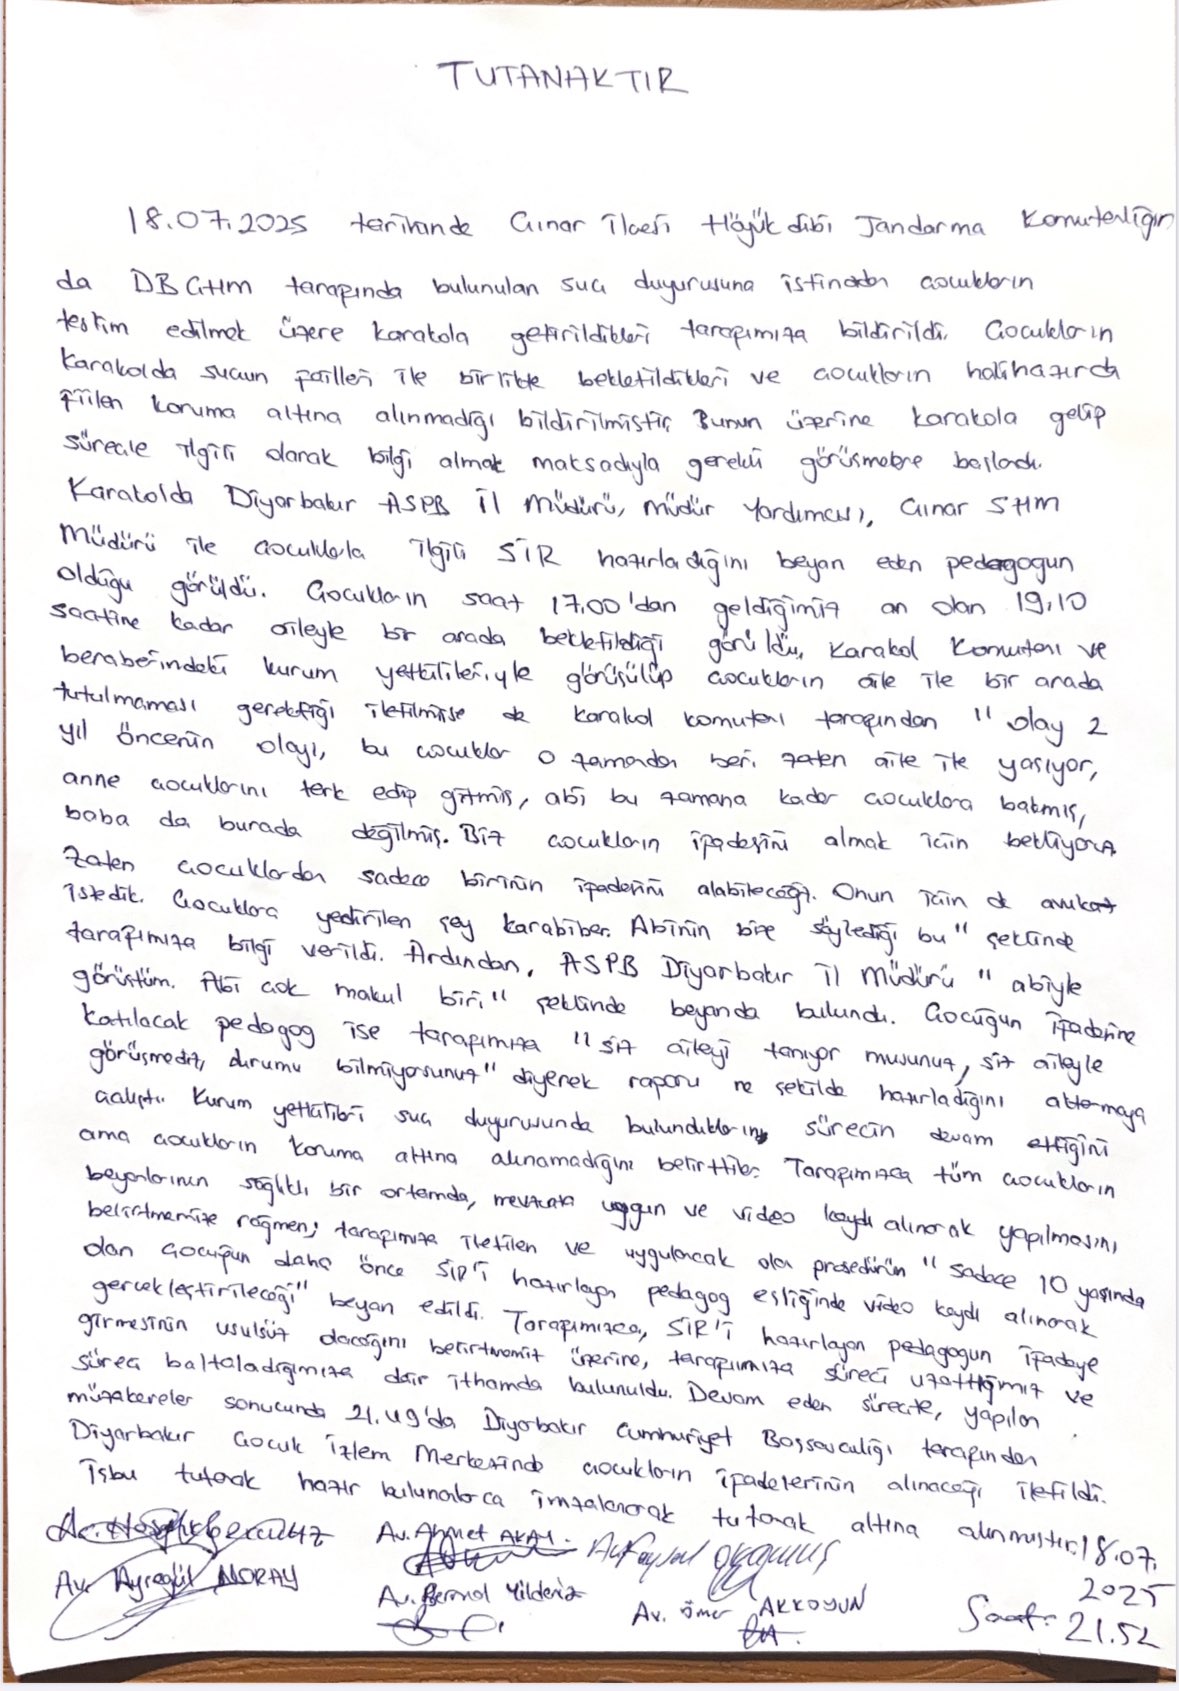 TUTANAKTIR
18.07.2025 tarihinde Çınar İlçesi Höyükdibi Jandarma Komutanlığın
da DBÇHM tarafında bulunulan suç duyurusuna istinaden çocukların
teslim edilmek üzere karakola getirildikleri tarafımıza bildirildi. Çocukların
karakolda suçun failleri ile birlikte bekletildikleri ve çocukların halihazırda
fiilen koruma altına alınmadığı bildirilmiştir. Bunun üzerine karakola gelip
süreçle ilgili olarak bilgi almak maksadıyla gerekli görüşmelere başlandı.
Karakolda Diyarbakır ASPB İl Müdürü, müdür yardımcısı, Çınar SHM
Müdürü ile çocuklarla ilgili SİR hazırladığını beyan eden pedagogun
olduğu görüldü. Çocukların saat 17.00'dan geldiğimiz an olan 19.10
saatine kadar aileyle bir arada bekletildiği görüldü. Karakol Komutanı ve
beraberindeki kurum yetkilileriyle görüşülüp çocukların aile ile bir arada
tutulmaması gerektiği iletilmişse de karakol komutanı tarafından "olay 2
yıl öncenin olayı, bu çocuklar o zamandan beri zaten aile ile yaşıyor,
anne çocuklarını terk edip gitmiş, abi bu zamana kadar çocuklara bakmış,
baba da burada değilmiş. Biz çocukların ifadesini almak için bekliyoruz.
Zaten çocuklardan sadece birinin ifadesini alabileceğiz. Onun için de avukat
istedik. Çocuklara yedirilen şey karabiber. Abinin bize söylediği bu" şeklinde
tarafımıza bilgi verildi. Ardından, ASPB Diyarbakır İl Müdürü "abiyle
görüştüm. Abi çok makul biri" şeklinde beyanda bulundu. Çocuğun ifadesine
katılacak pedagog ise tarafımıza "siz aileyi tanıyor musunuz, siz aileyle
görüşmediniz, durumu bilmiyorsunuz" diyerek raporu ne şekilde hazırladığını aktarmaya
çalıştı. Kurum yetkilileri suç duyurusunda bulunduklarını, sürecin devam ettiğini
ama çocukların koruma altına alınamadığını belirttiler. Tarafımızca tüm çocukların
beyanlarının sağlıklı bir ortamda, mevzuata uygun ve video kaydı alınarak yapılmasını
belirtmemize rağmen; tarafımıza iletilen ve uygulanacak olan prosedürün "sadece 10 yaşında
olan çocuğun daha önce SİR'i hazırlayan pedagog eşliğinde video kaydı alınarak
gerçekleştirileceği" beyan edildi. Tarafımızca, SİR'i hazırlayan pedagogun ifadeye
girmesinin usulsüz olacağını belirtmemiz üzerine, tarafımıza süreci uzattığımız ve
süreci baltaladığımıza dair ithamda bulunuldu. Devam eden süreçte, yapılan
müzakereler sonucunda 21.49'da Diyarbakır Cumhuriyet Başsavcılığı tarafından
Diyarbakır Çocuk İzlem Merkezinde çocukların ifadelerinin alınacağı iletildi.
İşbu tutanak hazır bulunanlarca imzalanarak tutanak altına alınmıştır. 18.07.
2025
Saat: 21.52
Av. Ahmet AKAY
Av. Veysal OKÇUMUŞ
Av. Ayşegül NORAY
Av. Bermal Yıldeniz
Av. Ömer AKKOYUN